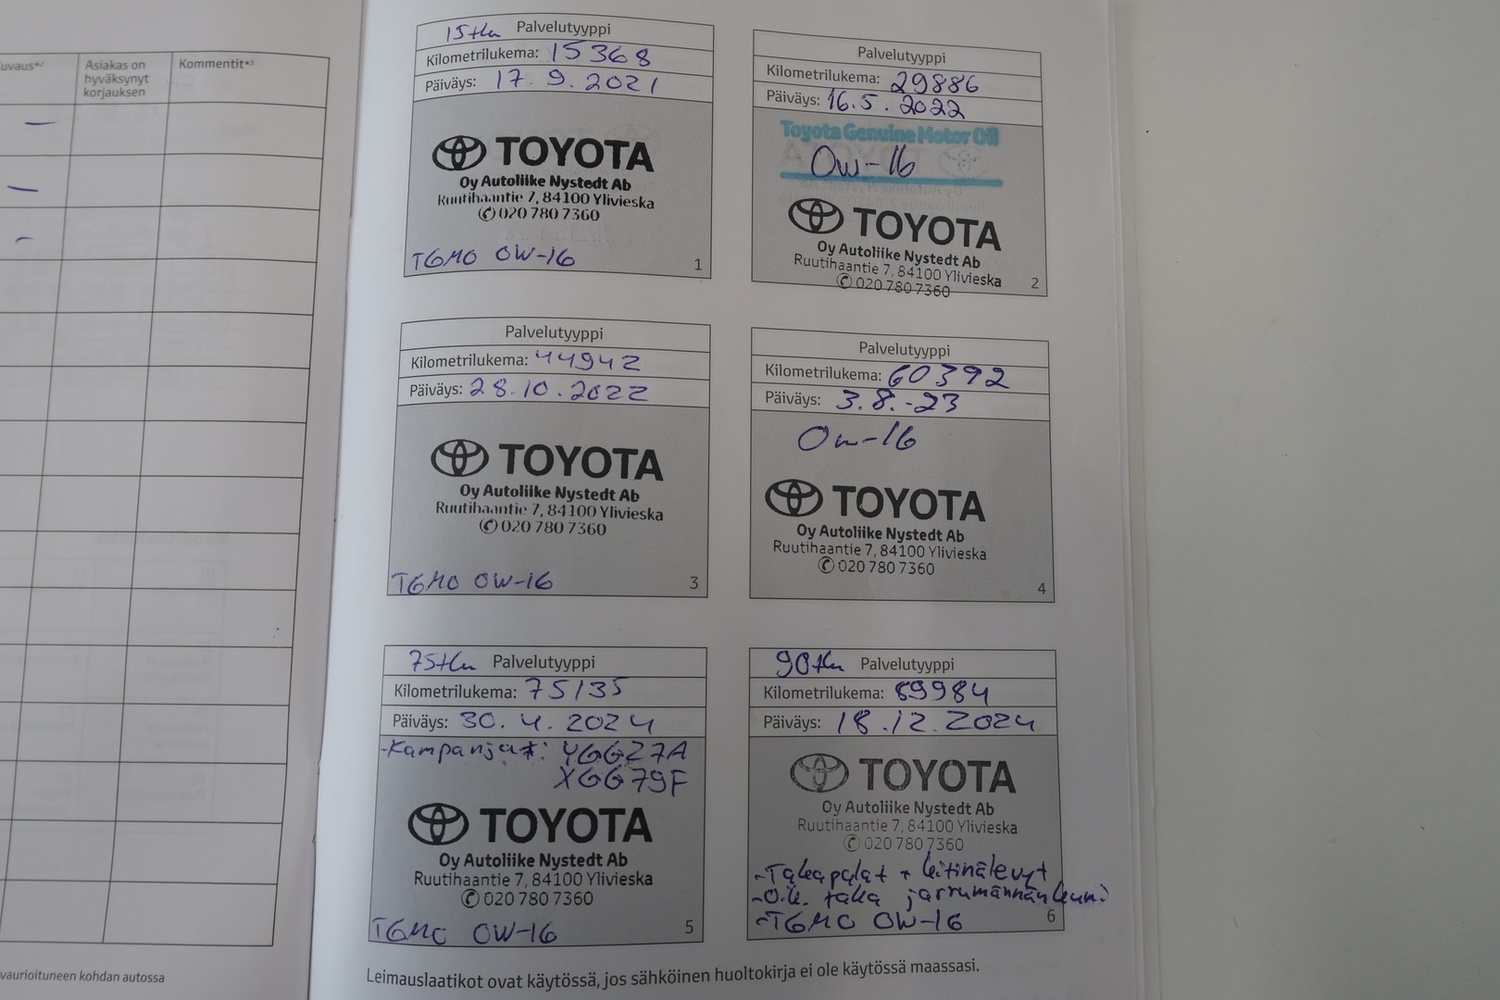 Asiakas on
hyväksynyt
korjauksen
Kommentit*³
15tkm Palvelutyyppi
Kilometrilukema: 15368
Päiväys: 17.9.2021
TOYOTA
Oy Autoliike Nystedt Ab
Ruutihaantie 7, 84100 Ylivieska
020 780 7360
TGMO 0W-16
1
Palvelutyyppi
Kilometrilukema: 29886
Päiväys: 16.5.2022
Toyota Genuine Motor Oil
0w-16
TOYOTA
Oy Autoliike Nystedt Ab
Ruutihaantie 7, 84100 Ylivieska
020 780 7360
2
Palvelutyyppi
Kilometrilukema: 44942
Päiväys: 28.10.2022
TOYOTA
Oy Autoliike Nystedt Ab
Ruutihaantie 7, 84100 Ylivieska
020 780 7360
TGMO 0W-16
3
Palvelutyyppi
Kilometrilukema: 60392
Päiväys: 3.8.-23
0w-16
TOYOTA
Oy Autoliike Nystedt Ab
Ruutihaantie 7, 84100 Ylivieska
020 780 7360
4
75tkm Palvelutyyppi
Kilometrilukema: 75135
Päiväys: 30.4.2024
-Kampanjat: YGGZ7A
XGG79F
TOYOTA
Oy Autoliike Nystedt Ab
Ruutihaantie 7, 84100 Ylivieska
020 780 7360
TGMO 0W-16
5
90tkm Palvelutyyppi
Kilometrilukema: 89984
Päiväys: 18.12.2024
TOYOTA
Oy Autoliike Nystedt Ab
Ruutihaantie 7, 84100 Ylivieska
020 780 7360
-Takapalat +
-O.k. taka jarrumännän
-TGMO 0W-16
6
vaurioituneen kohdan autossa
Leimauslaatikot ovat käytössä, jos sähköinen huoltokirja ei ole käytössä maassasi.